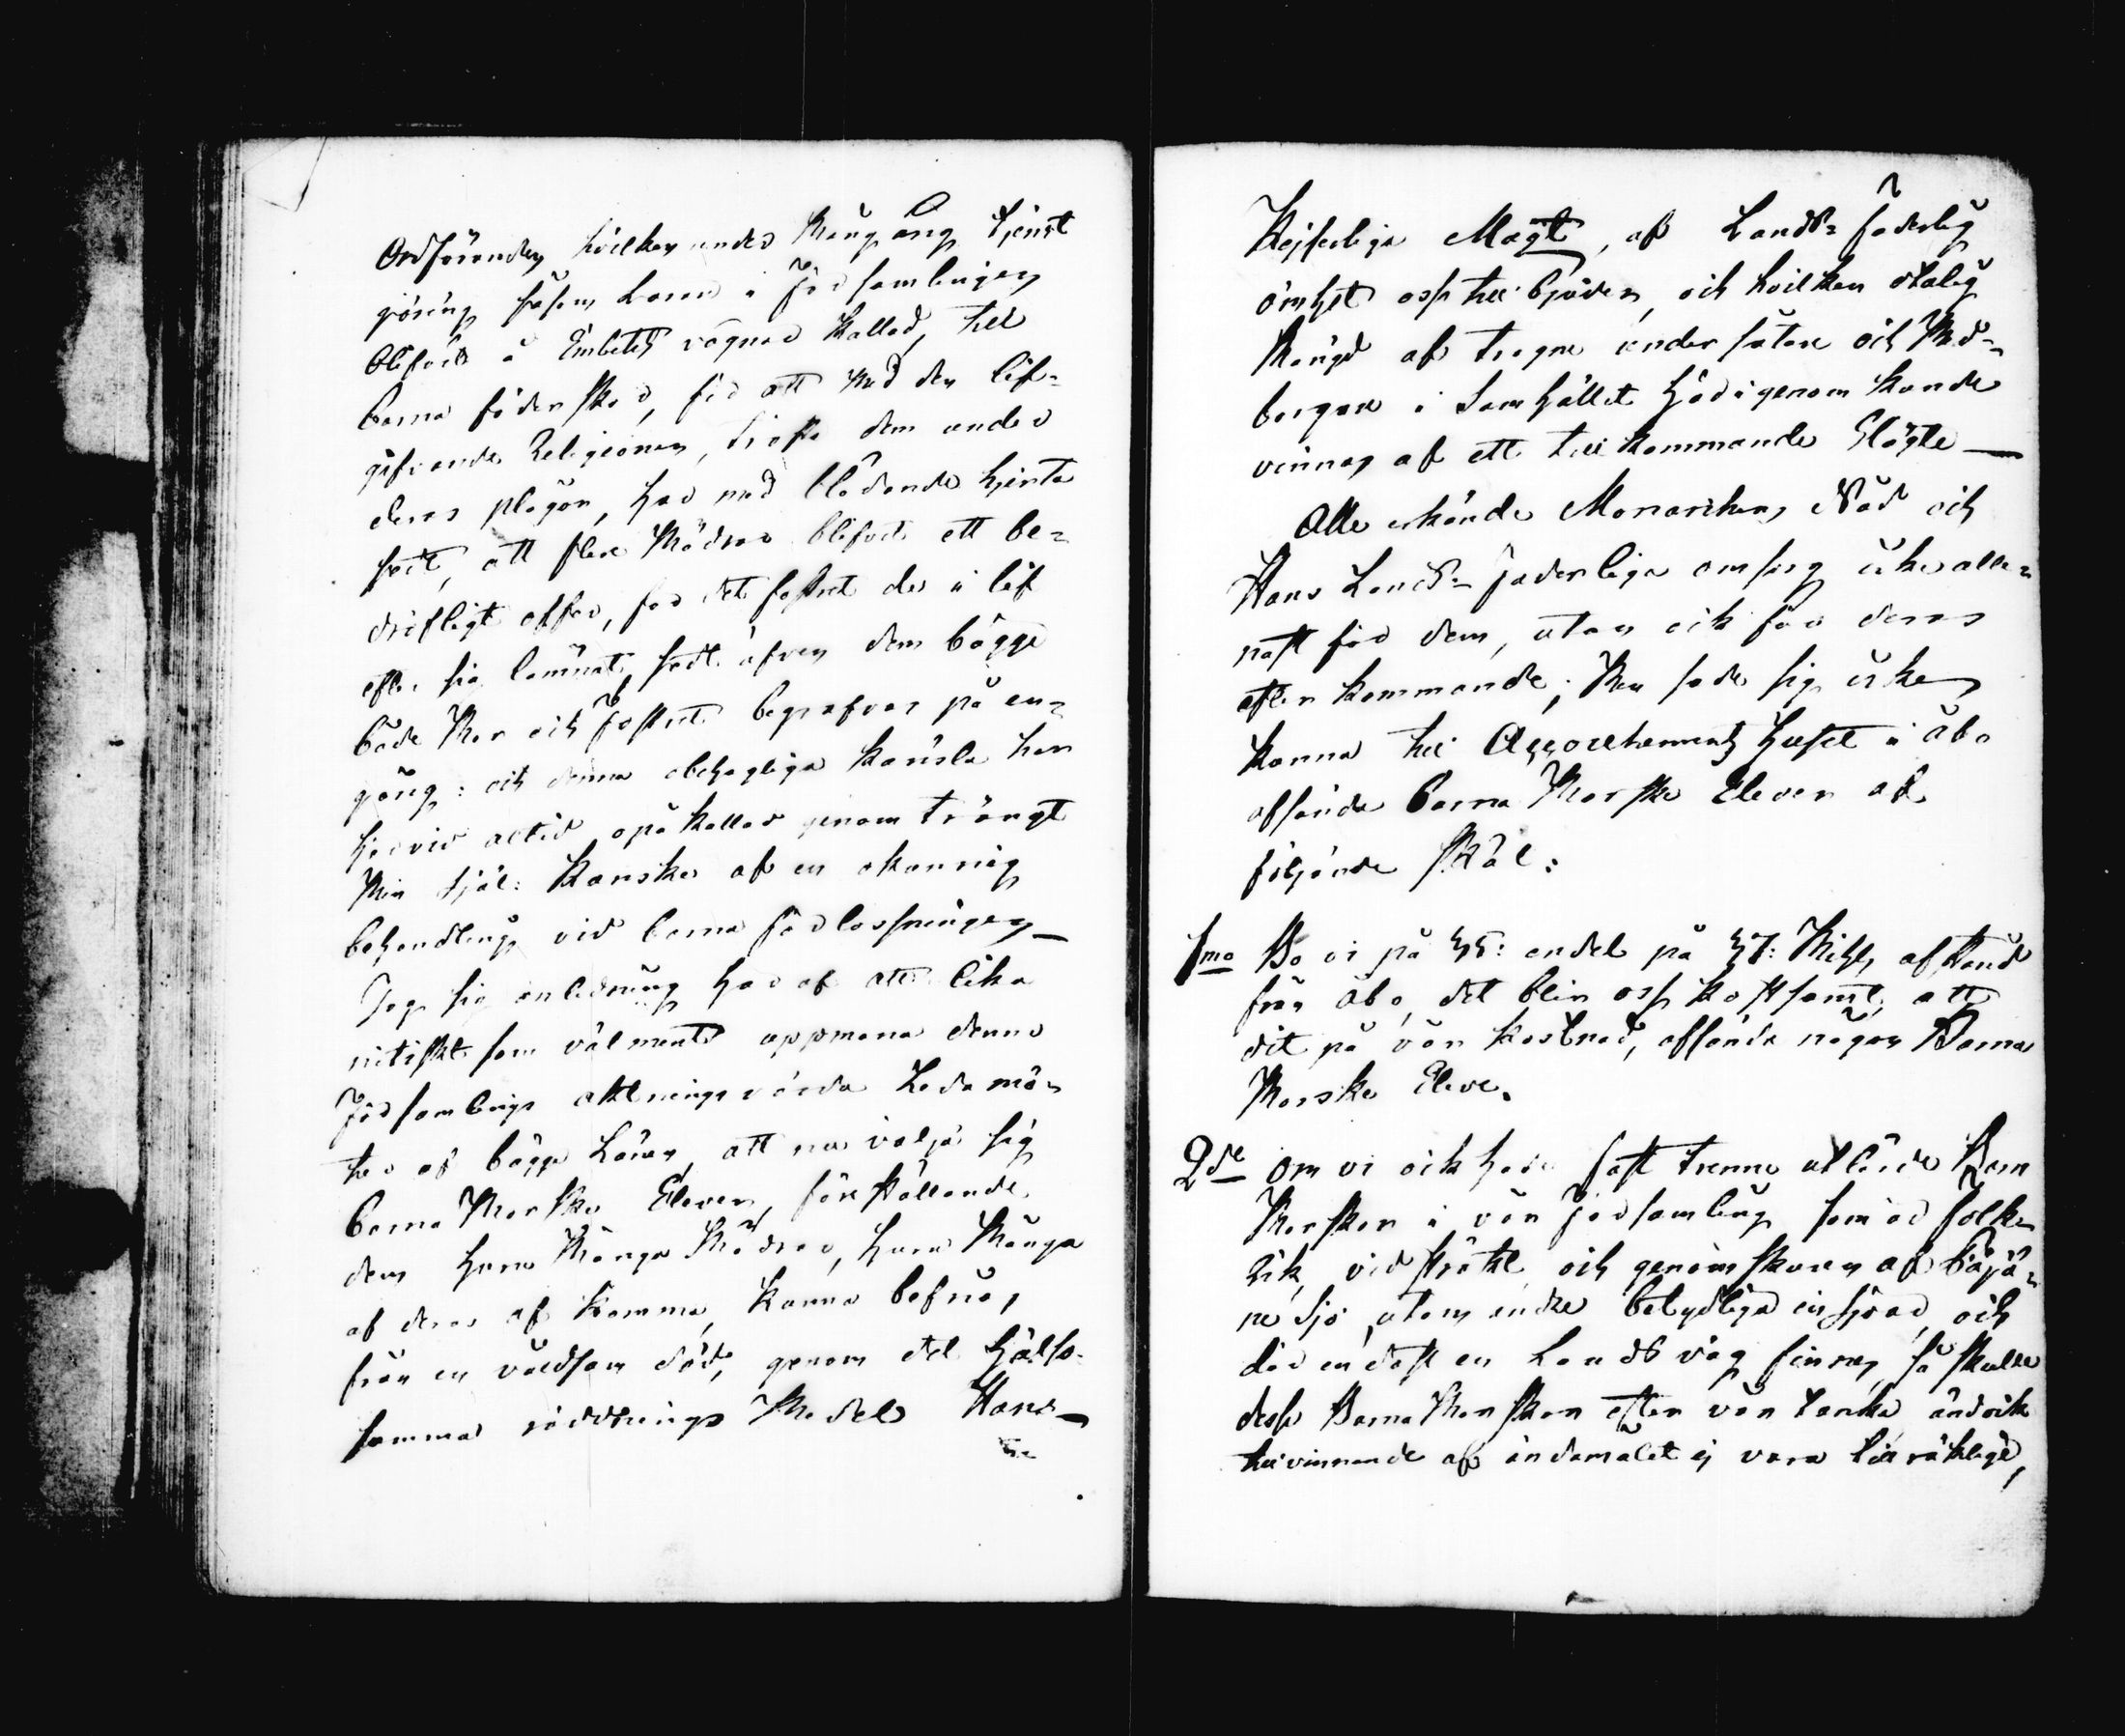 Ordföranden hvilken under Mång årig tjenst
göring såsom Lärare i Församlingen
blifvit å Embetets vägnar kallad, till
barna föderskor, för att med den lif-
gifvande Religionen, trösta dem under
deras plågor, har med blödande hjerta
sedt, att flere Mödrar blifvit ett be-
dröfligt offer, för det fostret de i lif
efter sig lämnat, sedt äfven dem bägge
både Mor och Fostret begrafvas på en-
gång: och denna obehagliga känsla har
härvid altid opåkallad genom trängt
Min Själ: kanske af en okunnig
behandling vid barna förlossningen —
Tog sig anledning här af att lika
nitiskt som välment uppmana denna
Församlings aktningsvärda Ledamö-
ter af bägge Könen, att nu välja sig
barna Morske Elever, föreställande
dem huru Många Mödrar, huru Många
af deras af komma, kunna befrias
från en våldsam död, genom det hälso-
samma räddnings Medel Hans —
Kejserliga Magt, af Lands-faderlig
ömhet oss till bjuder, och hvilken otalig
Mängd af trogne undersåtare och Med-
borgare i Samhället härigenom kunde
vinnas af ett tillkommande Slägte —
Alle erkände Monarkens Nåd och
Hans Lands-faderliga omsorg icke alle-
nast för dem, utan ock för deras
efterkommande; Men sade sig icke
kunna till Accouchements Huset i Åbo
afsända barna Morske Elever af
följande Skäl:
1mo Bo vi på 35: en del på 37: Mils afstånd
från Åbo, det blir oss kostsamt, att
dit på vår kostnad, afsända någon Barna
Morske Eleve.
2de om vi ock hade fast trenne utlärde Barn
Morskor i vår Församling som är folk-
rik, vidsträkt och genomskuren af Päjä-
ne Sjö, utom andre betydliga insjöar, och
där endast en Landsväg finnes, så skulle
desse Barna Morskor efter vår tanke ändock
till vinnande af ändamålet ej vara tillräklige,